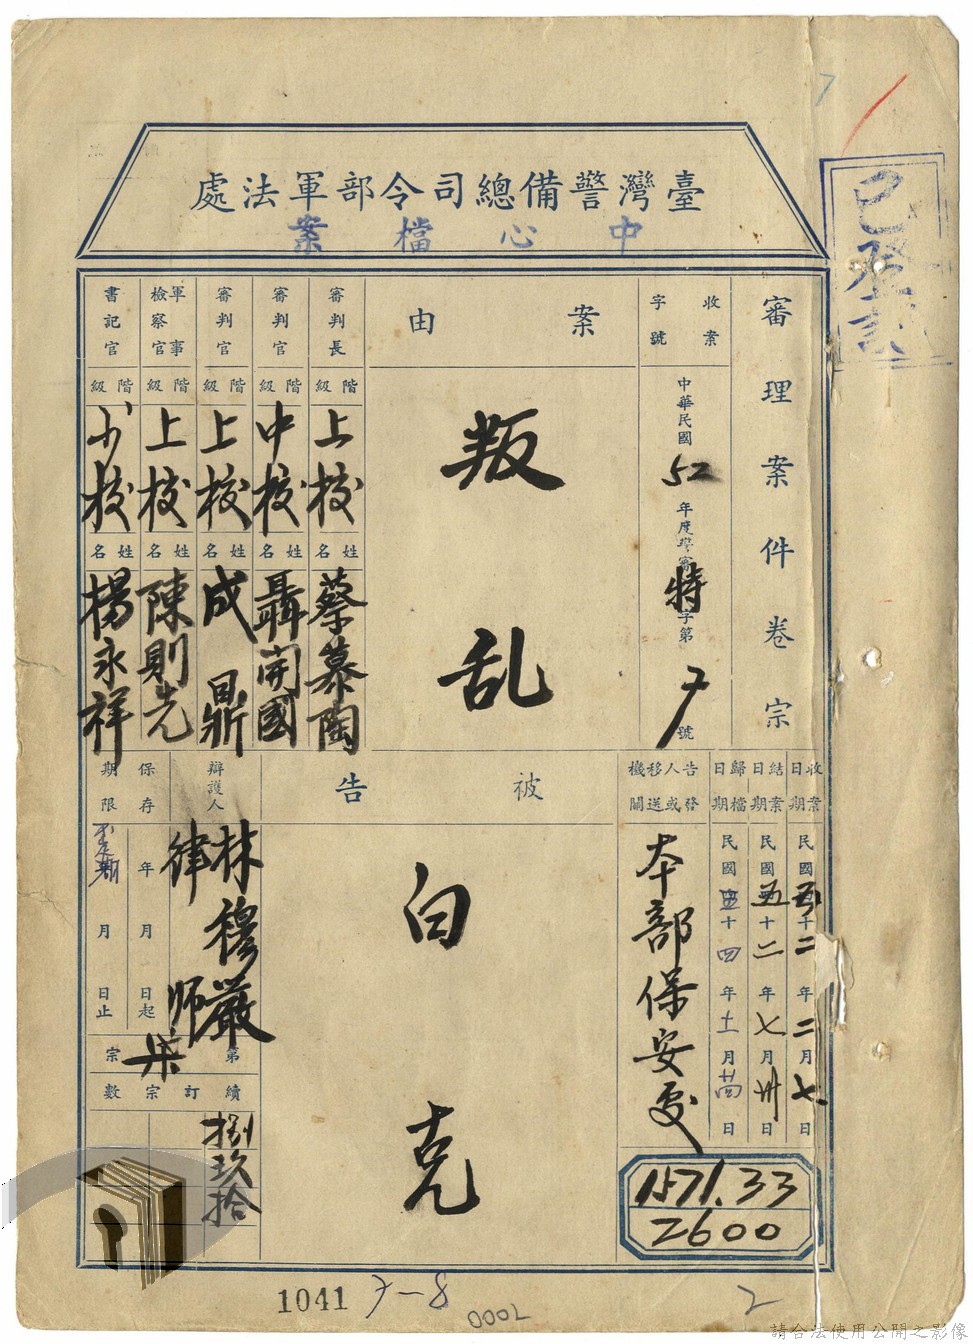 已登記
臺灣警備總司令部軍法處
中心檔案
審理案件卷宗
收案字號
中華民國52年度警審特字第7號
案由
叛乱
審判長
階級
上校
姓名
蔡慕陶
審判官
階級
中校
姓名
聶開國
審判官
階級
上校
姓名
成鼎
軍事檢察官
階級
上校
姓名
陳則先
書記官
階級
少校
姓名
楊永祥
收案日期
民國五十二年二月七日
結案日期
民國五十二年七月卅日
歸檔日期
民國五十四年十一月廿四日
告發人或移送機關
本部保安處
被告
白克
辯護人
林穆嚴
律師
保存期限
年月日起
年月日止
第柒宗
續訂宗數
捌
玖
拾
1571.33
2600
1041
7-8
0002
2
請合法使用公開之影像